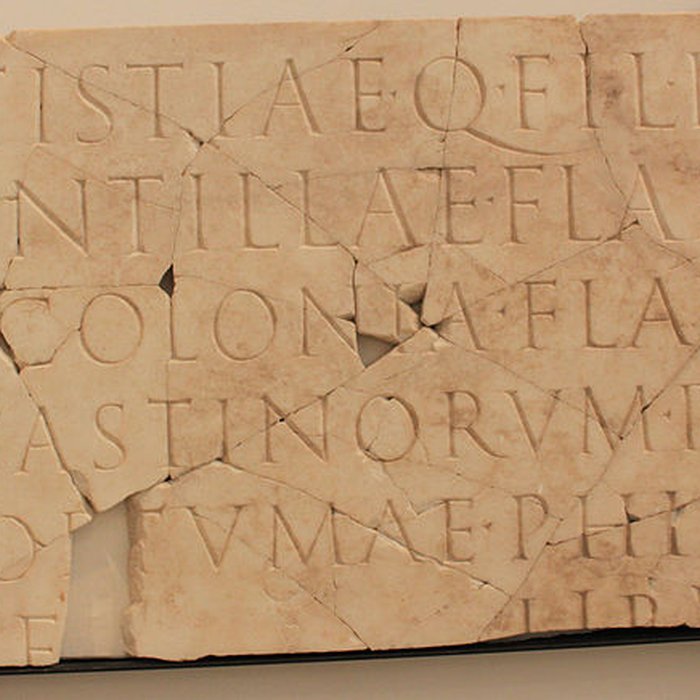 TISTIAE·Q·FILI
NTILLAE·FLA
COLONIA·FLA
ASTINORVM·I
OP TVMAE·PHI
E LIBI